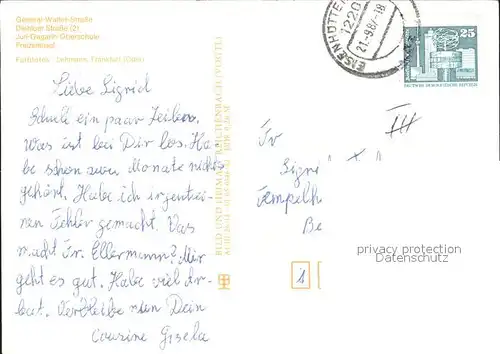 General-Walter-Straße
Diehloer Straße (2)
Juri-Gagarin-Oberschule
Friedenssiedl.
Farbfotos: Dehmann, Frankfurt (Oder)
Liebe Sigrid
Schnell ein paar Zeilen.
Was ist bei Dir los. Ha-
be schon zwei Monate nichts
gehört. Habe ich irgentei-
nen Fehler gemacht. Was
macht Fr. Ellermann? Mir
geht es gut. Habe viel Ar-
beit. Verbleibe nun Dein
Cousine Gisela
BILD UND HEIMAT REICHENBACH (VOGTL)
EISENHÜTTEN
1220
21.-9.87-18
25
DEUTSCHE DEMOKRATISCHE REPUBLIK
III
Fr
Sigri " x "
Tempelh
Be
privacy protection
Datenschutz
1